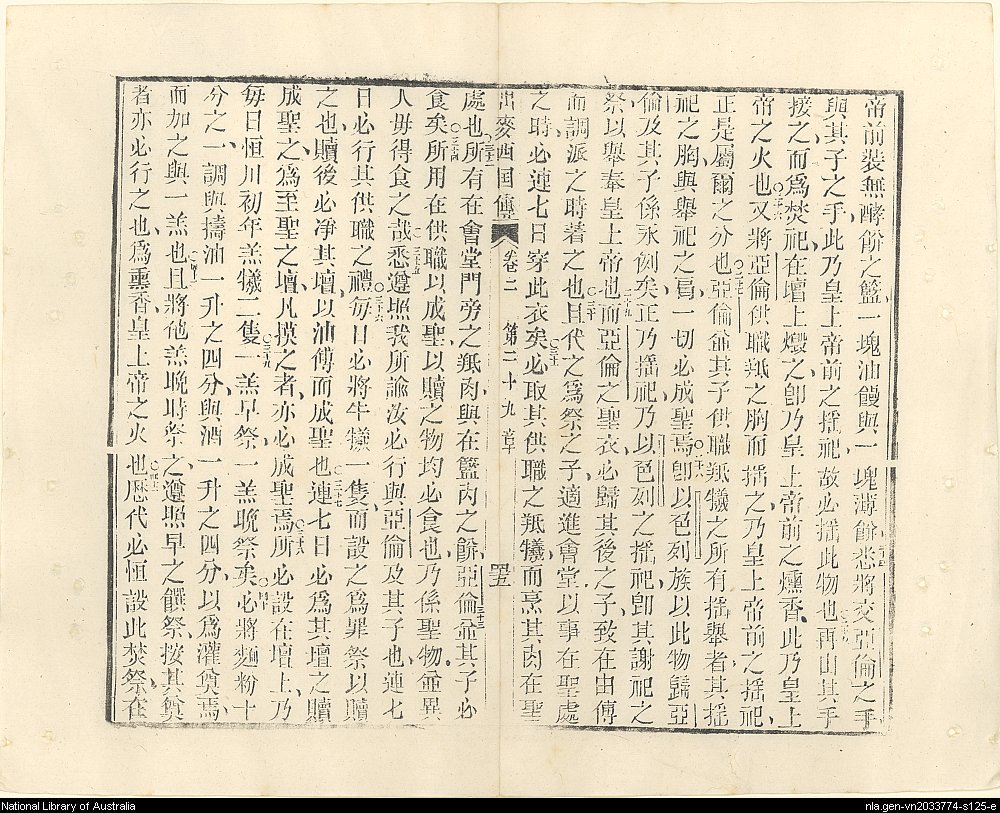 帝前裝無酵餅之籃一塊油饅與一塊薄餅悉將交亞倫之手
二十五
與其子之手此乃皇上帝前之搖祀故必搖此物也再由其手
接之而爲焚祀在壇上燬之卽乃皇上帝前之燻香此乃皇上
○二十六
帝之火也又將亞倫供職羝之胸而搖之乃皇上帝前之搖祀
正是屬爾之分也亞倫並其子供職羝犧之所有搖舉者其搖
○二十七
祀之胸與舉祀之肩一切必成聖焉卽以色列族以此物歸亞
○二十八
倫及其子係永例矣正乃搖祀乃以色列之搖祀卽其謝祀之
祭以舉奉皇上帝也而亞倫之聖衣必歸其後之子致在由傅
二十九
而調派之時着之也且代之爲祭之子適進會堂以事在聖處
○三十
之時必連七日穿此衣矣必取其供職之羝犧而烹其肉在聖
○三十一
出麥西国傳 卷二 第二十九章 四十五
處也所有在會堂門旁之羝肉與在籃內之餅亞倫並其子必
○三十二
食矣所用在供職以成聖以贖之物均必食也乃係聖物並異
○三十三
人毋得食之哉悉遵照我所諭汝必行與亞倫及其子也連七
○三十五
日必行其供職之禮每日必將牛犧一隻而設之爲罪祭以贖
○三十六
之也贖後必淨其壇以油傅而成聖也連七日必爲其壇之贖
○三十七
成聖之爲至聖之壇凡摸之者亦必成聖焉所必設在壇上乃
○三十八
每日恒川初年羔犧二隻一羔早祭一羔晚祭矣必將麵粉十
○三十九
○四十
分之一調與擣油一升之四分與酒一升之四分以爲灌奠焉
而加之與一羔也且將他羔晚時祭之遵照早之饌祭按其奠
○四十一
者亦必行之也爲熏香皇上帝之火也歷代必恒設此焚祭在
○四十二